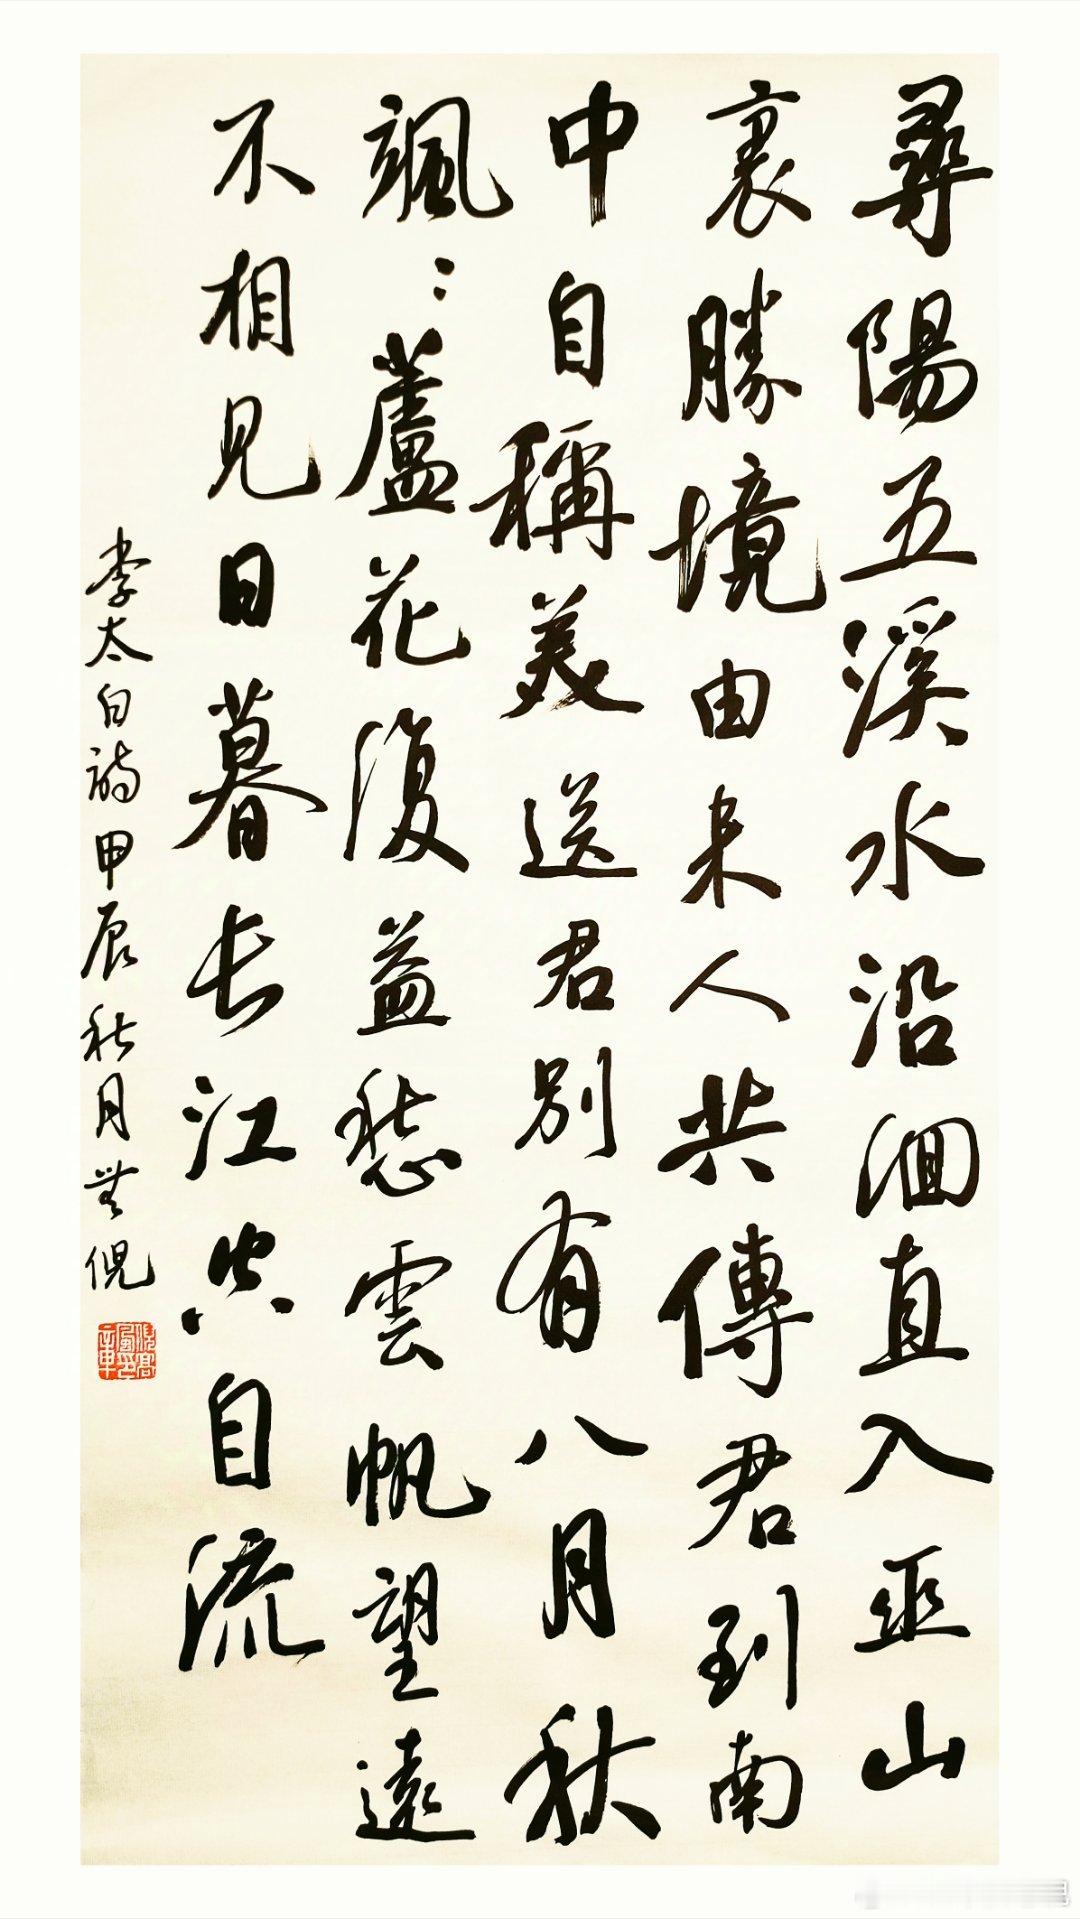 尋陽五溪水沿洄直入巫山
裏勝境由来人共傳君到南
中自稱美送君別有八月秋
颯〻蘆花復益愁雲帆望遠
不相見日暮长江空自流
李太白詩甲辰秋月無倪